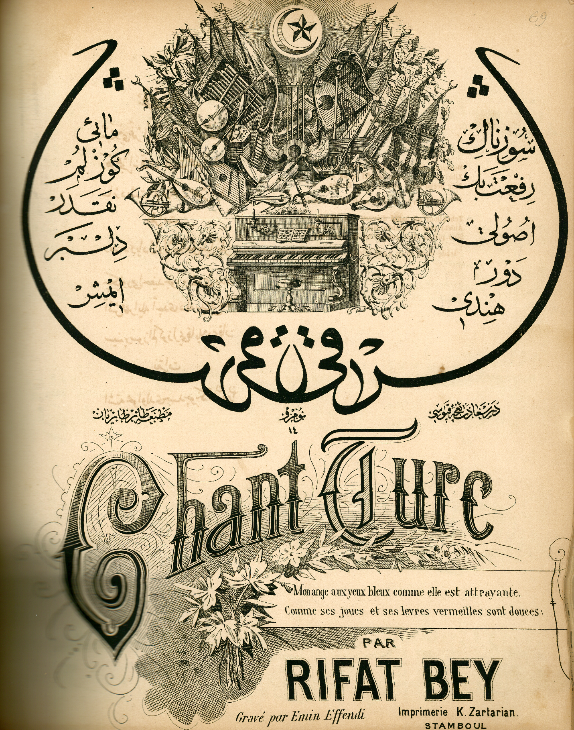 سوزناك
رفعت بك
اصولی
دور
هندی
مائی
كوزلم
نقدر
دلبر
ایمش
شرقی
نومرو
١٤
Chant Turc
Mon ange aux yeux bleux comme elle est attrayante.
Comme ses joues et ses levres vermeilles sont douces:
PAR
RIFAT BEY
Gravé par Emin Effendi
Imprimerie K. Zartarian.
STAMBOUL